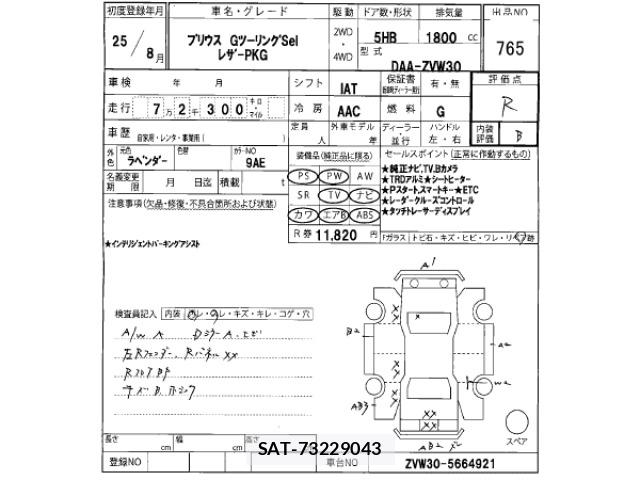 初度登録年月 車名・グレード 駆動 ドア数・形状 排気量 出品NO
25 / 8月 プリウス GツーリングSel レザーPKG 2WD ・ 4WD 5HB 1800 cc 765
型式 DAA-ZVW30
車検 年 月 シフト IAT 保証書 有・無 評価点
走行 7万2千300 キロ・マイル 冷房 AAC 燃料 G R
車歴 自家用・レンタ・事業用( ) 定員 人 外車モデル 年 ディーラー・並行 ハンドル 左・右 内装評価 B
外色 元色 ラベンダー 色替 カラーNO 9AE 装備品(純正品に限る) セールスポイント(正常に作動するもの)
名義変更期限 月 日迄 積載 t PS PW AW
★純正ナビ,TV,Bカメラ
★TRDアルミ★シートヒーター
SR TV ナビ
★Pスタート,スマートキー★ETC
★レーダークルーズコントロール
注意事項(欠品・修復・不具合箇所および状態) カワ エアB ABS
★タッチトレーサーディスプレイ
R券 11,820 円 Fガラス トビ石・キズ・ヒビ・ワレ・リペア跡
★インテリジェントパーキングアシスト
A1
検査員記入 内装 ヨレ・スレ・キズ・キレ・コゲ・穴
A/W A
B2 a2
左Rフェンダー、Rパネル XX
w2
AB3
AB2
スペア
長さ cm 幅 cm 高さ
SAT-73229043
登録NO 車台NO ZVW30-5664921